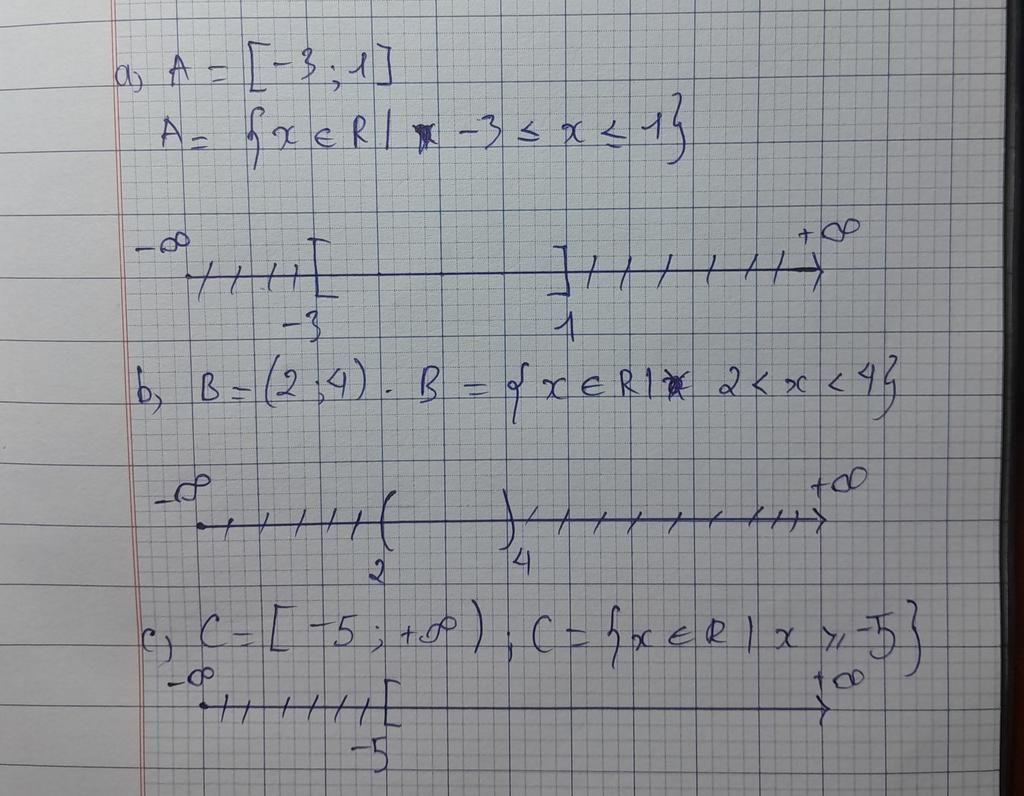 a, A = [-3 ; 1]
A = {x ∈ R | -3 ≤ x ≤ 1}
-∞ +∞
-3 1
b, B = (2 ; 4) . B = {x ∈ R | 2 < x < 4}
-∞ +∞
2 4
c, C = [-5 ; +∞) ; C = {x ∈ R | x ≥ -5}
-∞ +∞
-5